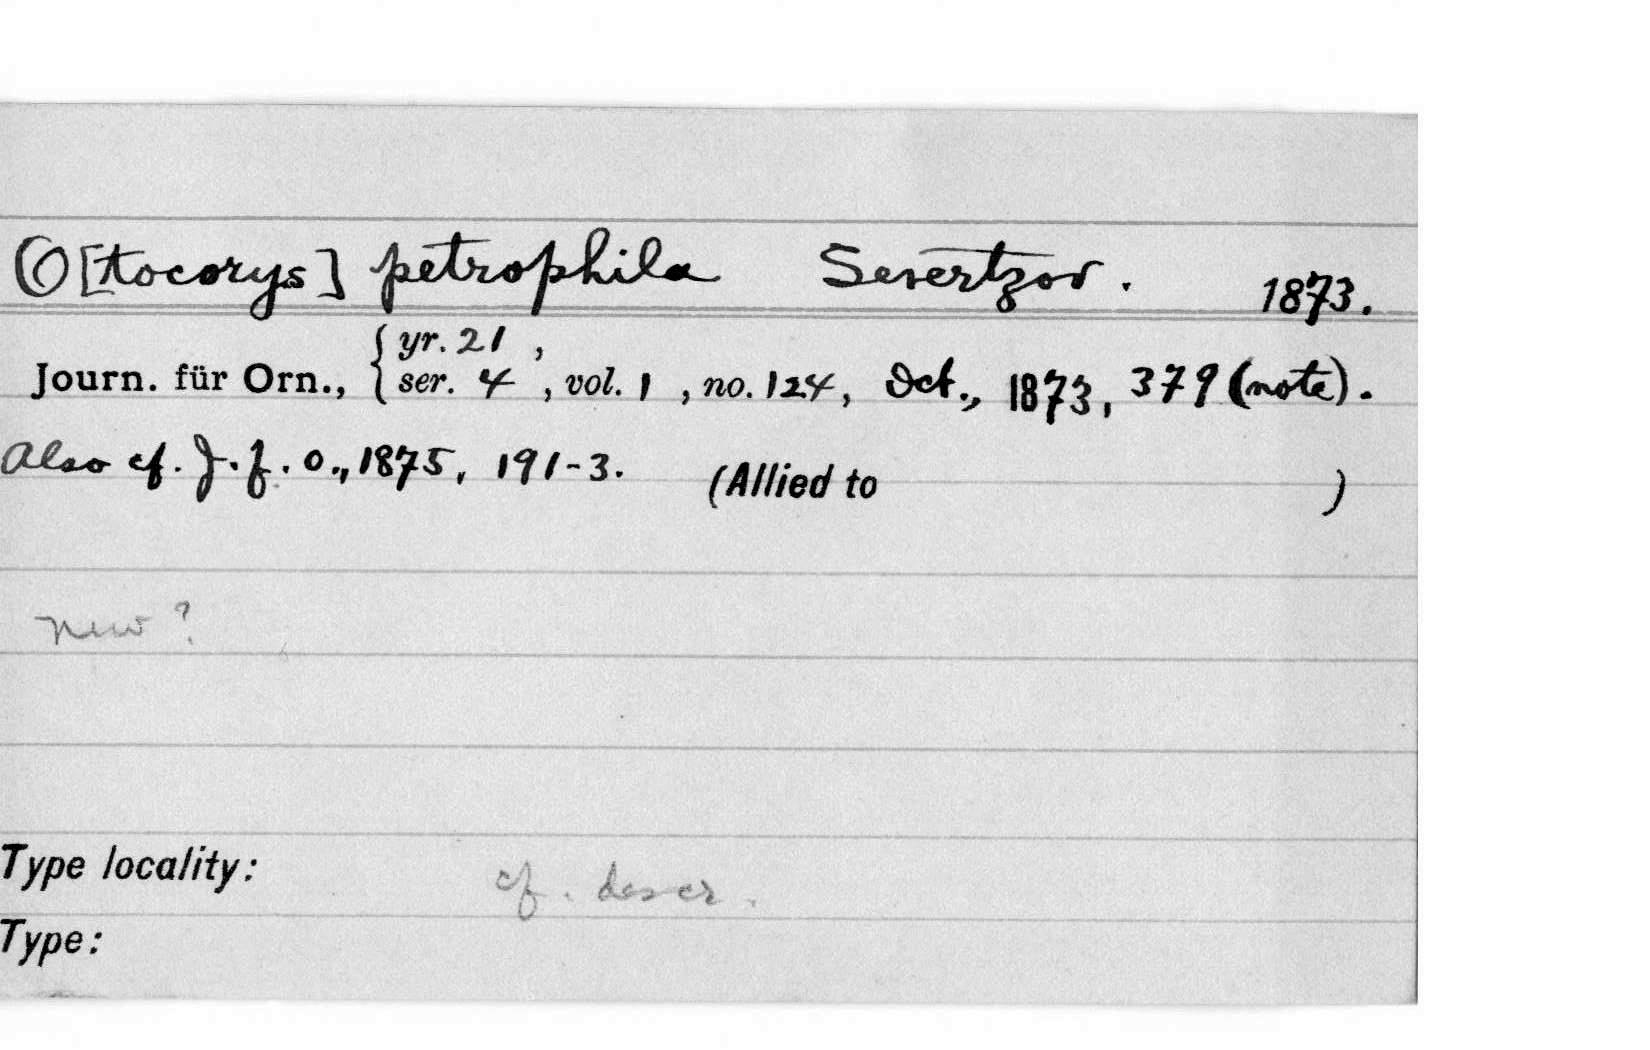 O[tocorys] petrophila Severtzov. 1873.
Journ. für Orn., { yr. 21 ,
ser. 4 , vol. 1 , no. 124, Oct., 1873, 379 (note).
Also cf. J. f. O., 1875, 191-3. (Allied to )
new ?
Type locality: cf. descr.
Type: